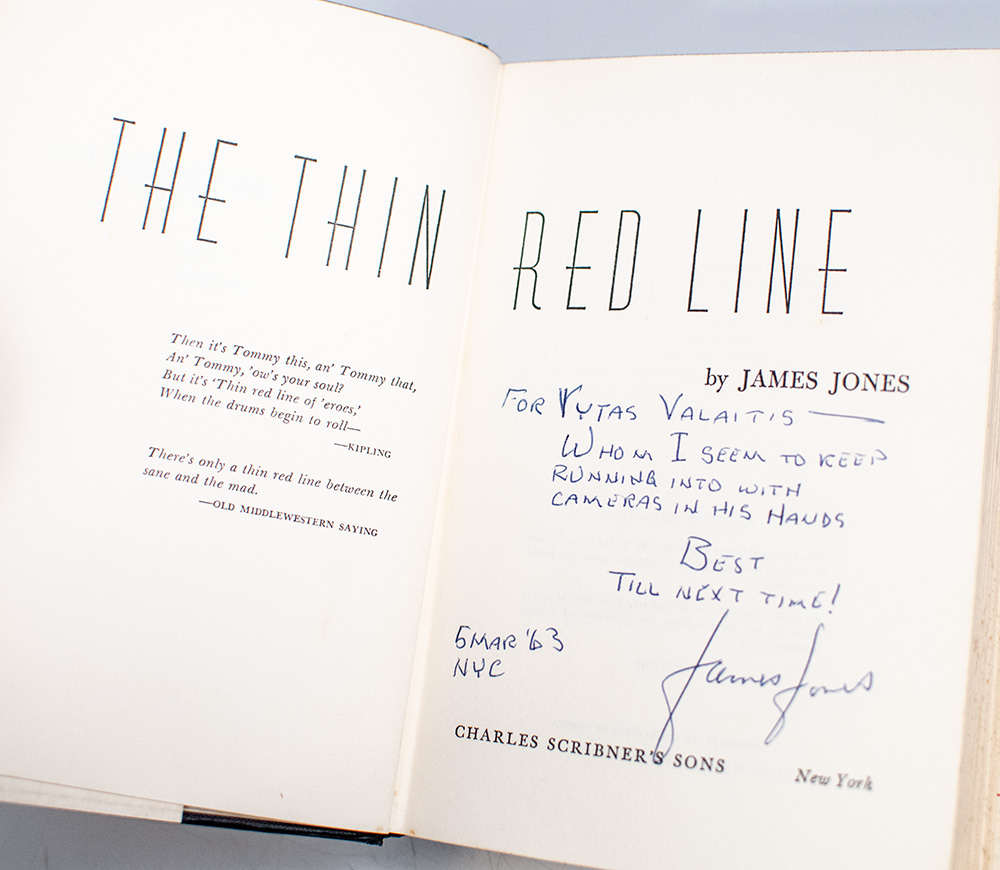 THE THIN
Then it's Tommy this, an' Tommy that,
An' Tommy, 'ow's your soul?
But it's 'Thin red line of 'eroes,'
When the drums begin to roll—
—KIPLING
There's only a thin red line between the
sane and the mad.
—OLD MIDDLEWESTERN SAYING
RED LINE
by JAMES JONES
FOR VYTAS VALAITIS —
WHOM I SEEM TO KEEP
RUNNING INTO WITH
CAMERAS IN HIS HANDS
BEST
TILL NEXT TIME!
5 MAR '63
NYC
James Jones
CHARLES SCRIBNER'S SONS
New York